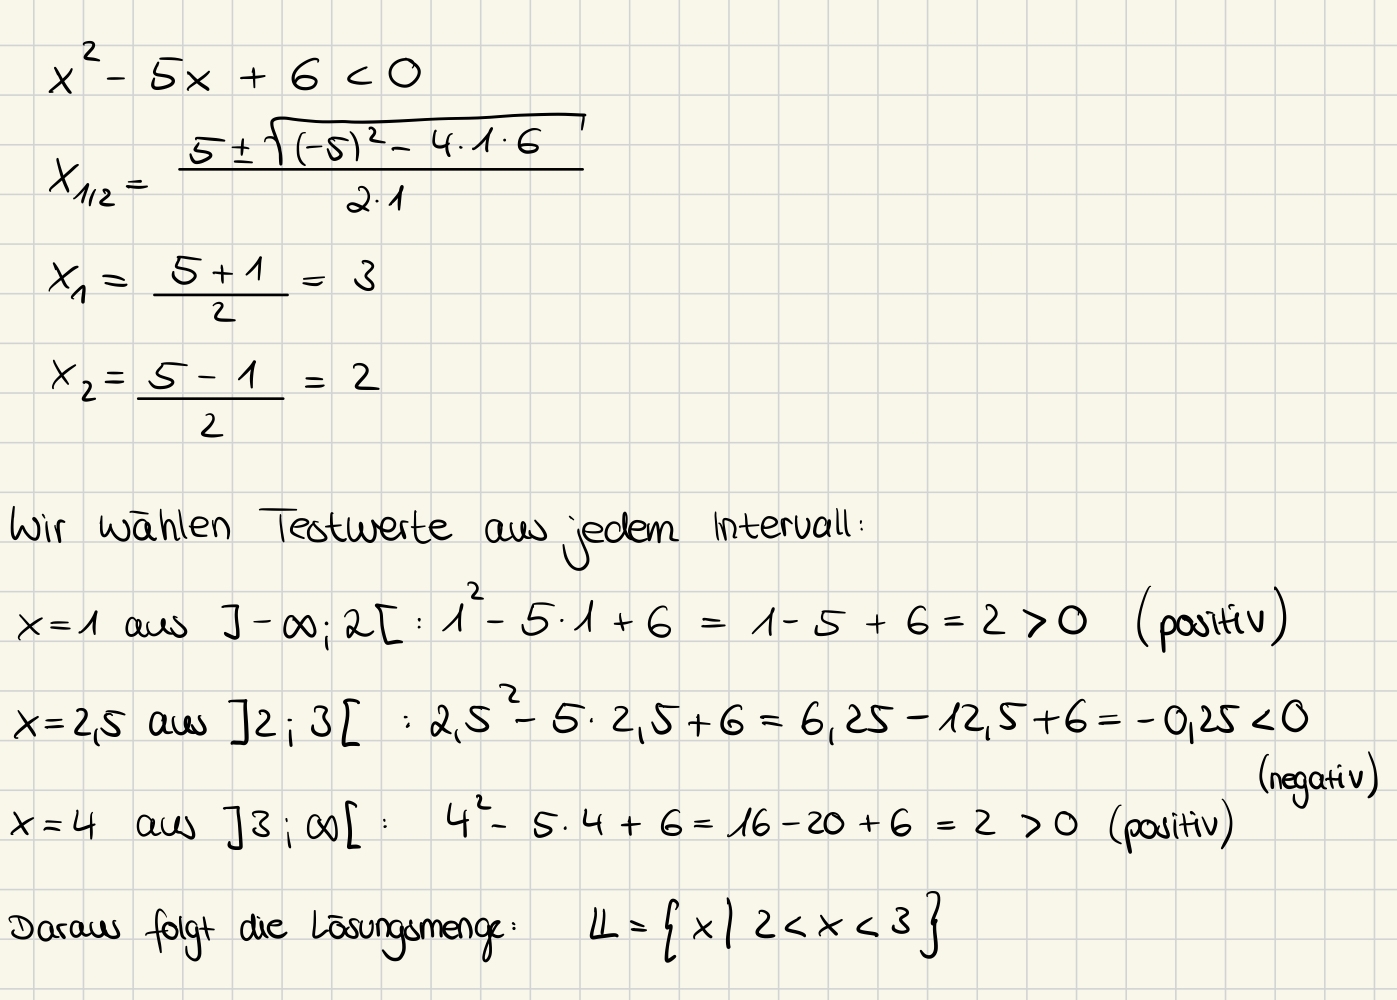 x² - 5x + 6 < 0
x₁/₂ = (5 ± √((-5)² - 4·1·6)) / (2·1)
x₁ = (5 + 1) / 2 = 3
x₂ = (5 - 1) / 2 = 2
Wir wählen Testwerte aus jedem Intervall:
x = 1 aus ]-∞; 2[ : 1² - 5·1 + 6 = 1 - 5 + 6 = 2 > 0 (positiv)
x = 2,5 aus ]2; 3[ : 2,5² - 5·2,5 + 6 = 6,25 - 12,5 + 6 = -0,25 < 0
(negativ)
x = 4 aus ]3; ∞[ : 4² - 5·4 + 6 = 16 - 20 + 6 = 2 > 0 (positiv)
Daraus folgt die Lösungsmenge: 𝕃 = {x | 2 < x < 3}